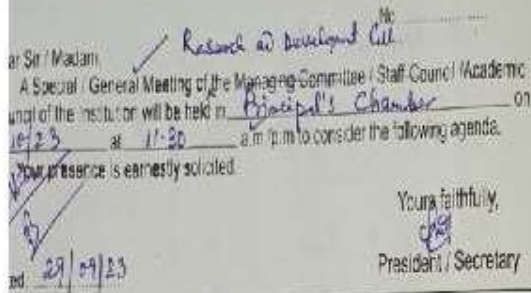 No ..............
Research and Development Cell
ar Sir / Madam,
A Special / General Meeting of the Managing Committee / Staff Council / Academic
uncil of the Institution will be held in Principal's Chamber on
10/23 at 11-30 a.m / p.m to consider the following agenda.
Your presence is earnestly solicited.
Yours faithfully,
President / Secretary
ed 29/09/23